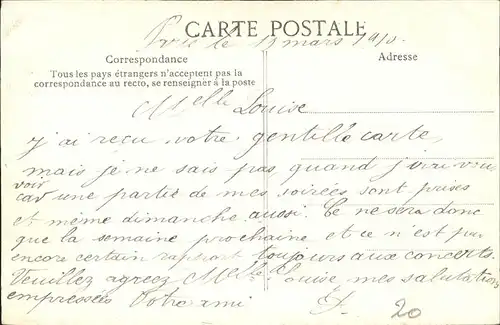 CARTE POSTALE
le 13 mars 1910
Correspondance
Adresse
Tous les pays étrangers n'acceptent pas la
correspondance au recto, se renseigner à la poste
Melle Louise
j'ai reçu votre gentille carte,
mais je ne sais pas quand j'irai vous
voir
car une partie de mes soirées sont prises
et même dimanche aussi. Ce ne sera donc
que la semaine prochaine et ce n'est pas
encore certain toujours aux concerts.
Veuillez agreez Melle Louise mes salutations
empressées Votre ami
20